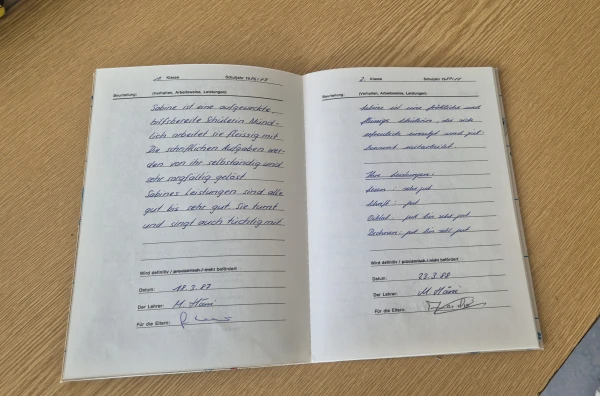 1. Klasse Schuljahr 1986/87
Beurteilung: (Verhalten, Arbeitsweise, Leistungen)
Sabine ist eine aufgeweckte,
hilfsbereite Schülerin. Münd-
lich arbeitet sie fleissig mit.
Die schriftlichen Aufgaben wer-
den von ihr selbständig und
sehr sorgfältig gelöst.
Sabines Leistungen sind alle
gut bis sehr gut. Sie turnt
und singt auch tüchtig mit.
Wird definitiv / provisorisch / nicht befördert
Datum: 18.3.87
Der Lehrer: M. Häni
Für die Eltern:
2. Klasse Schuljahr
Beurteilung: (Verhalten, Arbeitsweise, Leistungen)
Sabine ist eine fröhliche und
fleissige Schülerin, die sich
erfreulich einsetzt und gut
mitarbeitet.
Ihre Leistungen:
Lesen: sehr gut
Schrift: gut
Diktat: gut bis sehr gut
Rechnen: gut bis sehr gut
Wird definitiv / provisorisch / nicht befördert
Datum: 23.3.88
Der Lehrer: M. Häni
Für die Eltern: